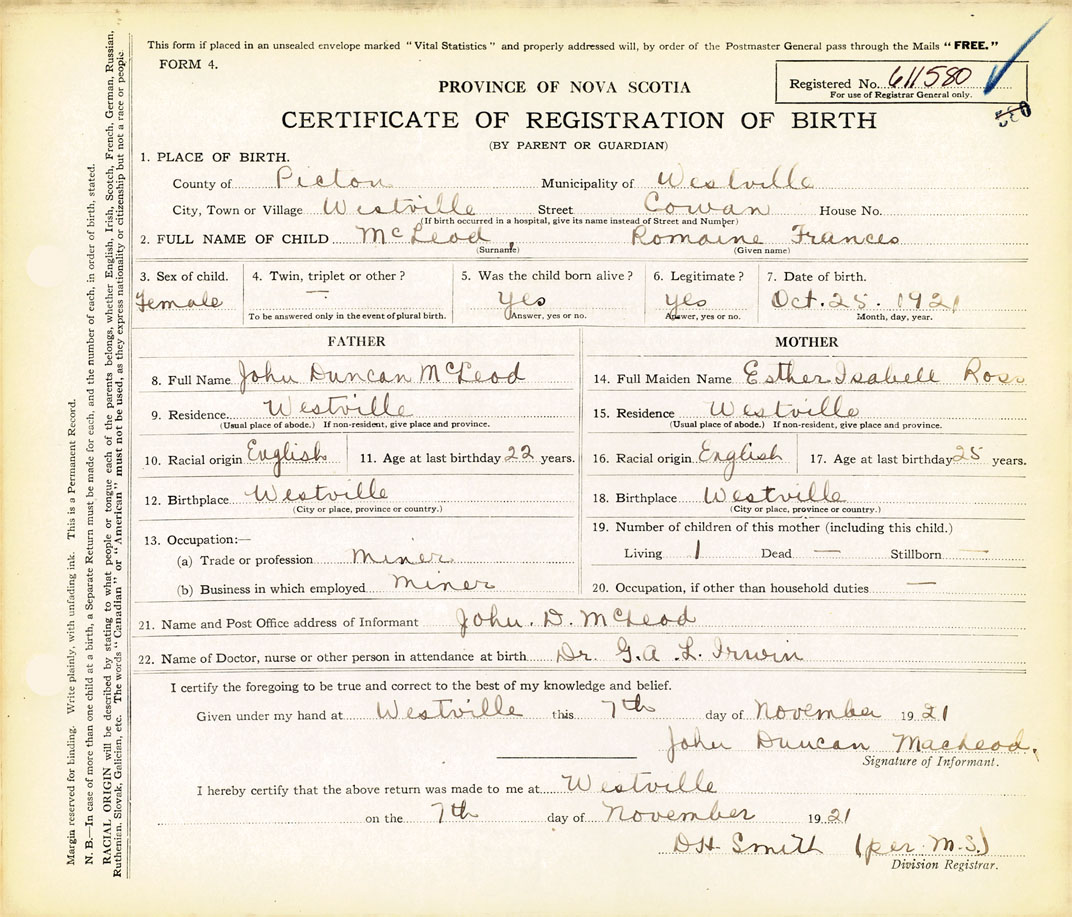 This form if placed in an unsealed envelope marked "Vital Statistics" and properly addressed will, by order of the Postmaster General pass through the Mails "FREE."
FORM 4.
PROVINCE OF NOVA SCOTIA
Registered No. 611580
For use of Registrar General only.
CERTIFICATE OF REGISTRATION OF BIRTH
(BY PARENT OR GUARDIAN)
1. PLACE OF BIRTH.
County of Picton Municipality of Westville
City, Town or Village Westville Street Cowan House No.
(If birth occurred in a hospital, give its name instead of Street and Number)
2. FULL NAME OF CHILD McLeod, Romaine Frances
(Surname) (Given name)
3. Sex of child. 4. Twin, triplet or other? 5. Was the child born alive? 6. Legitimate? 7. Date of birth.
Female — yes yes Oct. 25. 1921
To be answered only in the event of plural birth. Answer, yes or no. Answer, yes or no. Month, day, year.
FATHER MOTHER
8. Full Name John Duncan McLeod 14. Full Maiden Name Esther Isabell Ross
9. Residence. Westville 15. Residence Westville
(Usual place of abode.) If non-resident, give place and province. (Usual place of abode.) If non-resident, give place and province.
10. Racial origin English 11. Age at last birthday 22 years. 16. Racial origin English 17. Age at last birthday 25 years.
12. Birthplace Westville 18. Birthplace Westville
(City or place, province or country.) (City or place, province or country.)
13. Occupation:— 19. Number of children of this mother (including this child.)
(a) Trade or profession Miner Living 1 Dead — Stillborn —
(b) Business in which employed Miner 20. Occupation, if other than household duties —
21. Name and Post Office address of Informant John. D. McLeod
22. Name of Doctor, nurse or other person in attendance at birth Dr. G. A. L. Irwin
I certify the foregoing to be true and correct to the best of my knowledge and belief.
Given under my hand at Westville this 7th day of November 1921
John Duncan MacLeod.
Signature of Informant.
I hereby certify that the above return was made to me at Westville
on the 7th day of November 1921
DH Smith (per M.S.)
Division Registrar.
Margin reserved for binding. Write plainly, with unfading ink. This is a Permanent Record.
N. B.—In case of more than one child at a birth, a Separate Return must be made for each, and the number of each, in order of birth, stated.
RACIAL ORIGIN will be described by stating to what people or tongue each of the parents belongs, whether English, Irish, Scotch, French, German, Russian,
Ruthenian, Slovak, Galician, etc. The words "Canadian" or "American" must not be used, as they express nationality or citizenship but not a race or people.